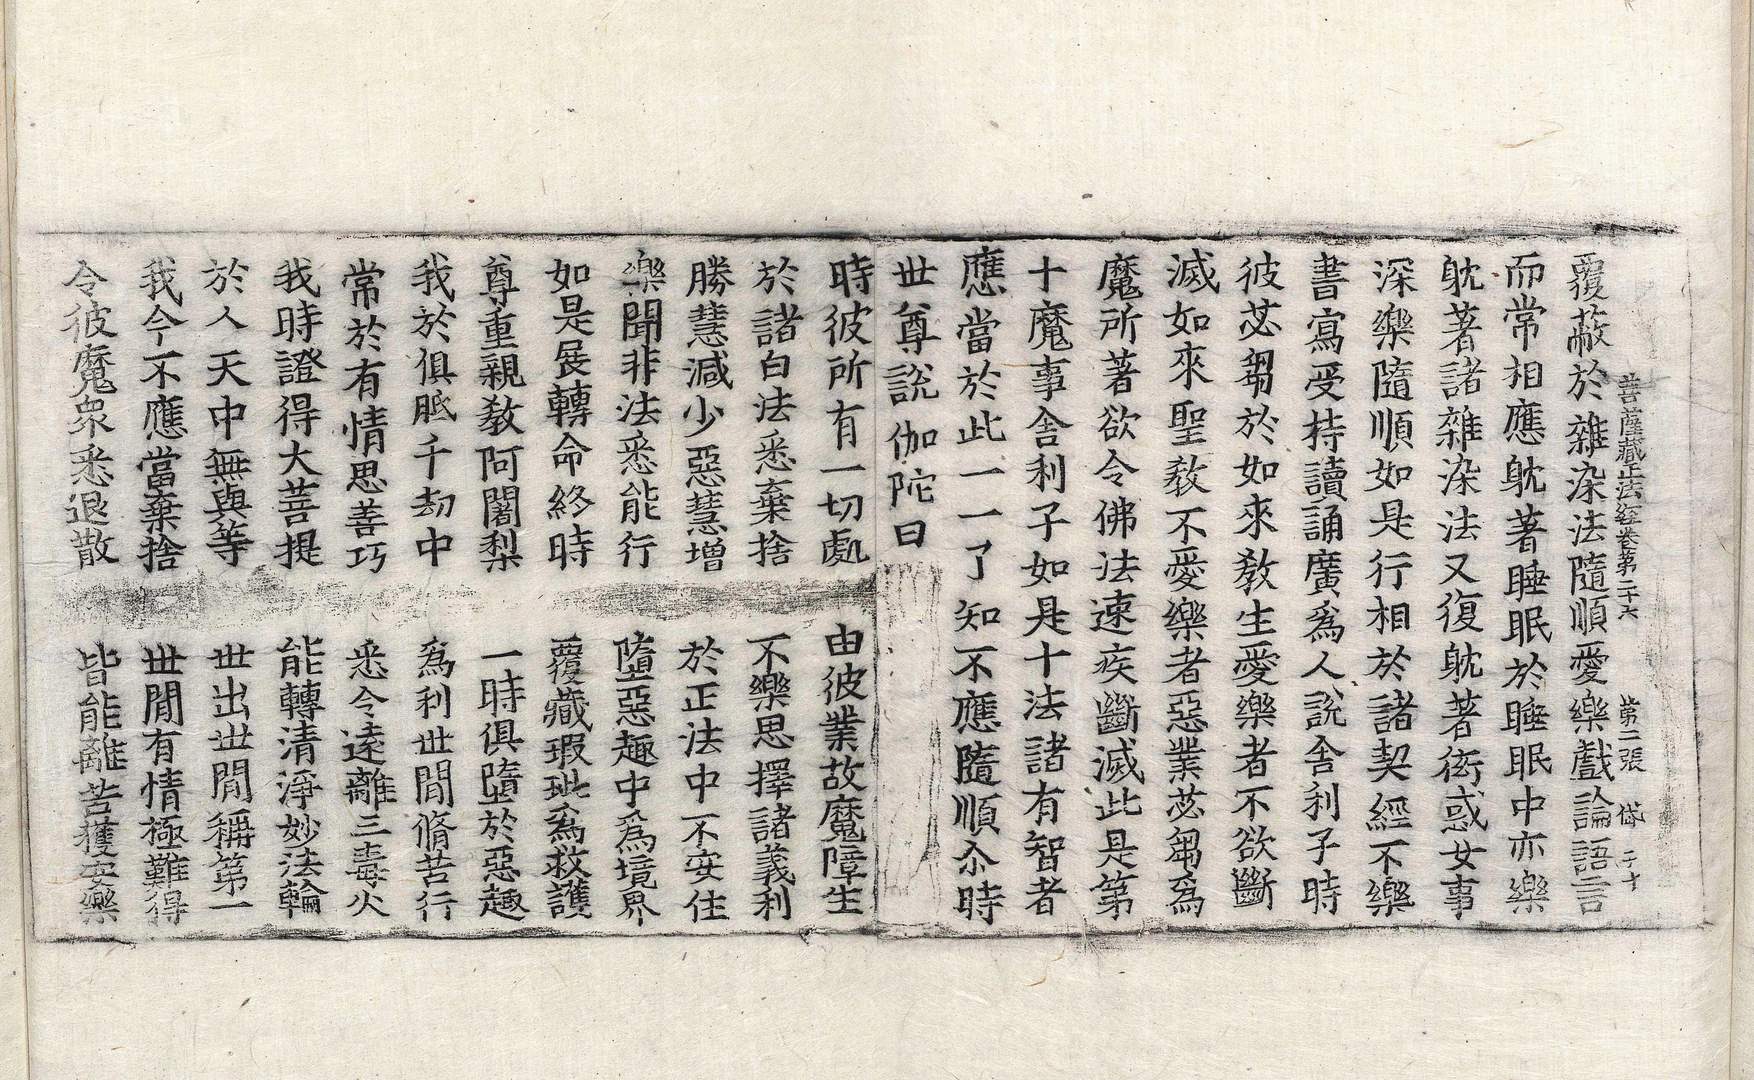 菩薩藏正法經卷第二十六 第二張 岱 二十
覆蔽於雜染法隨順愛樂戲論語言
而常相應躭著睡眠於睡眠中亦樂
躭著諸雜染法又復躭著衒惑女事
深樂隨順如是行相於諸契經不樂
書寫受持讀誦廣爲人說舍利子時
彼苾芻於如來敎生愛樂者不欲斷
滅如來聖敎不愛樂者惡業苾芻爲
魔所著欲令佛法速疾斷滅此是第
十魔事舍利子如是十法諸有智者
應當於此一一了知不應隨順尒時
世尊說伽陀曰
時彼所有一切處 由彼業故魔障生
於諸白法悉棄捨 不樂思擇諸義利
勝慧減少惡慧增 於正法中不安住
樂聞非法悉能行 墮惡趣中爲境界
如是展轉命終時 覆藏瑕玼爲救護
尊重親敎阿闍梨 一時俱墮於惡趣
我於俱胝千劫中 爲利世間脩苦行
常於有情思善巧 悉令遠離三毒火
我時證得大菩提 能轉清淨妙法輪
於人天中無與等 世出世間稱第一
我今不應當棄捨 世間有情極難得
令彼魔衆悉退散 皆能離苦獲安樂